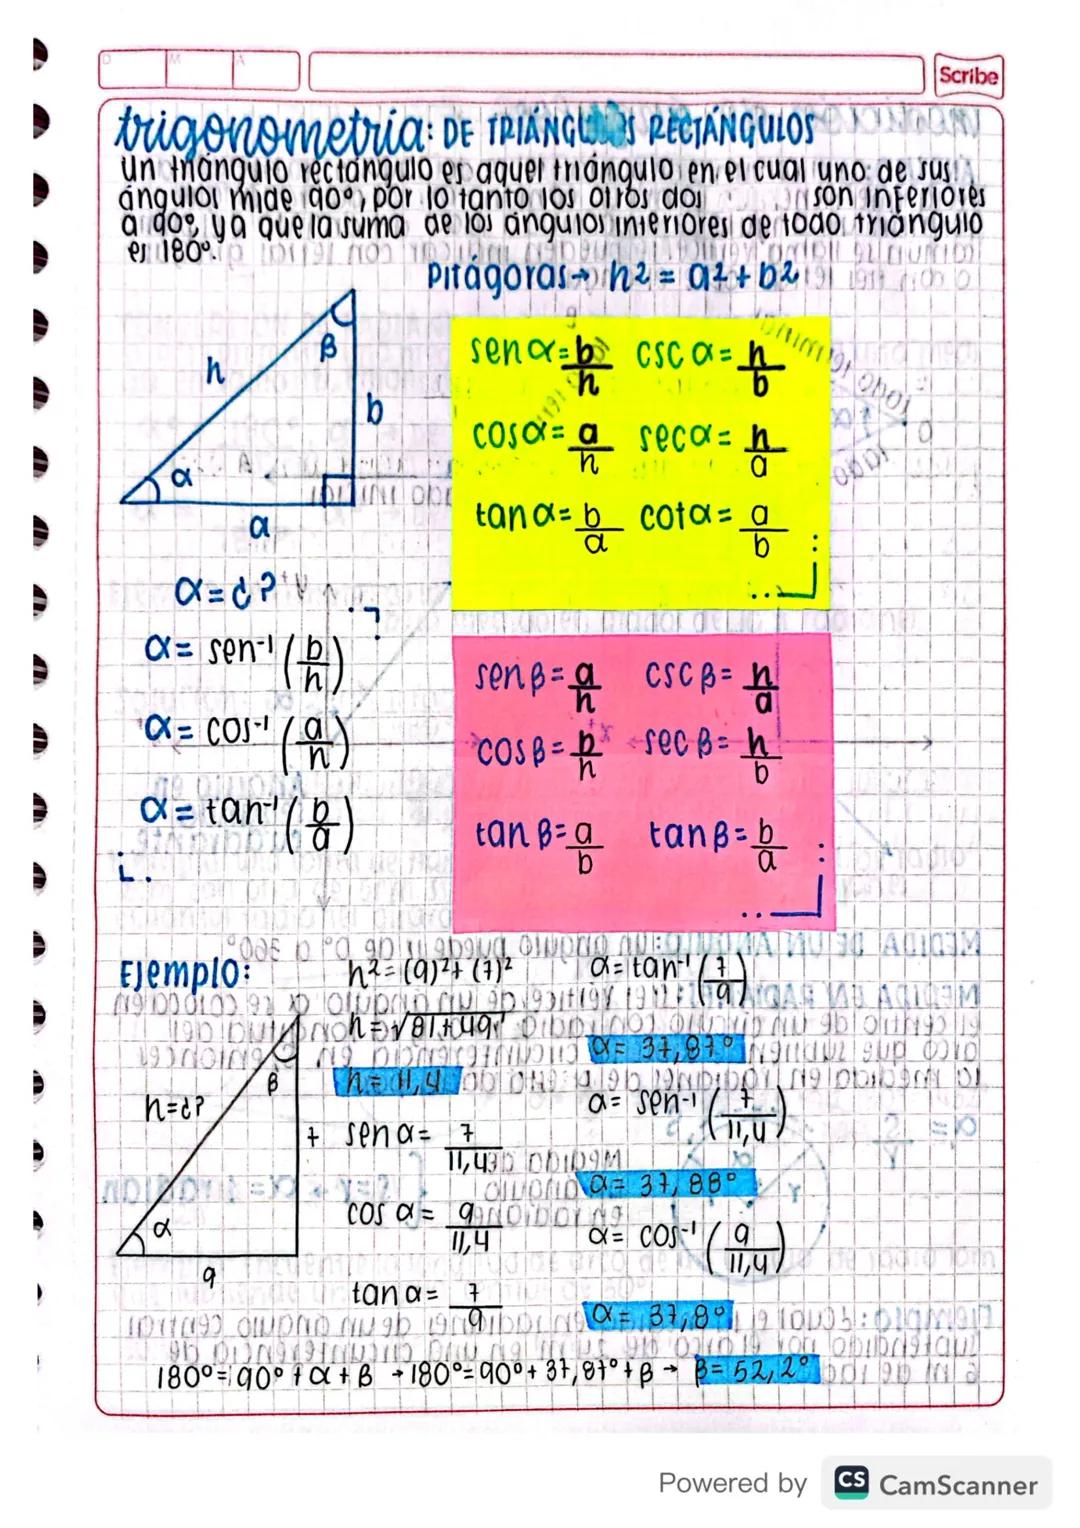 D M A
Scribe
trigonometría: DE TRIÁNGULOS RECTÁNGULOS
un triángulo rectángulo es aquel triángulo en el cual uno de sus
ángulos mide 90°, por lo tanto los otros dos son inferiores
a 90°, ya que la suma de los ángulos interiores de todo triángulo
es 180°.
Pitágoras → h² = a² + b²
h
β
b
α
a
sen α = b/h csc α = h/b
cos α = a/h sec α = h/a
tan α = b/a cot α = a/b
α = ¿?
α = sen⁻¹ (b/h)
α = cos⁻¹ (a/h)
α = tan⁻¹ (b/a)
sen β = a/h csc β = h/a
cos β = b/h sec β = h/b
tan β = a/b tan β = b/a
Ejemplo:
h = ¿?
β
7
α
9
h² = (9)² + (7)²
h = √81 + 49
h = 11,4
sen α = 7/11,4
cos α = 9/11,4
tan α = 7/9
α = tan⁻¹ (7/9)
α = 37,87°
α = sen⁻¹ (7/11,4)
α = 37,88°
α = cos⁻¹ (9/11,4)
α = 37,8°
180° = 90° + α + β → 180° = 90° + 37,87° + β → β = 52,2°
Powered by CS CamScanner